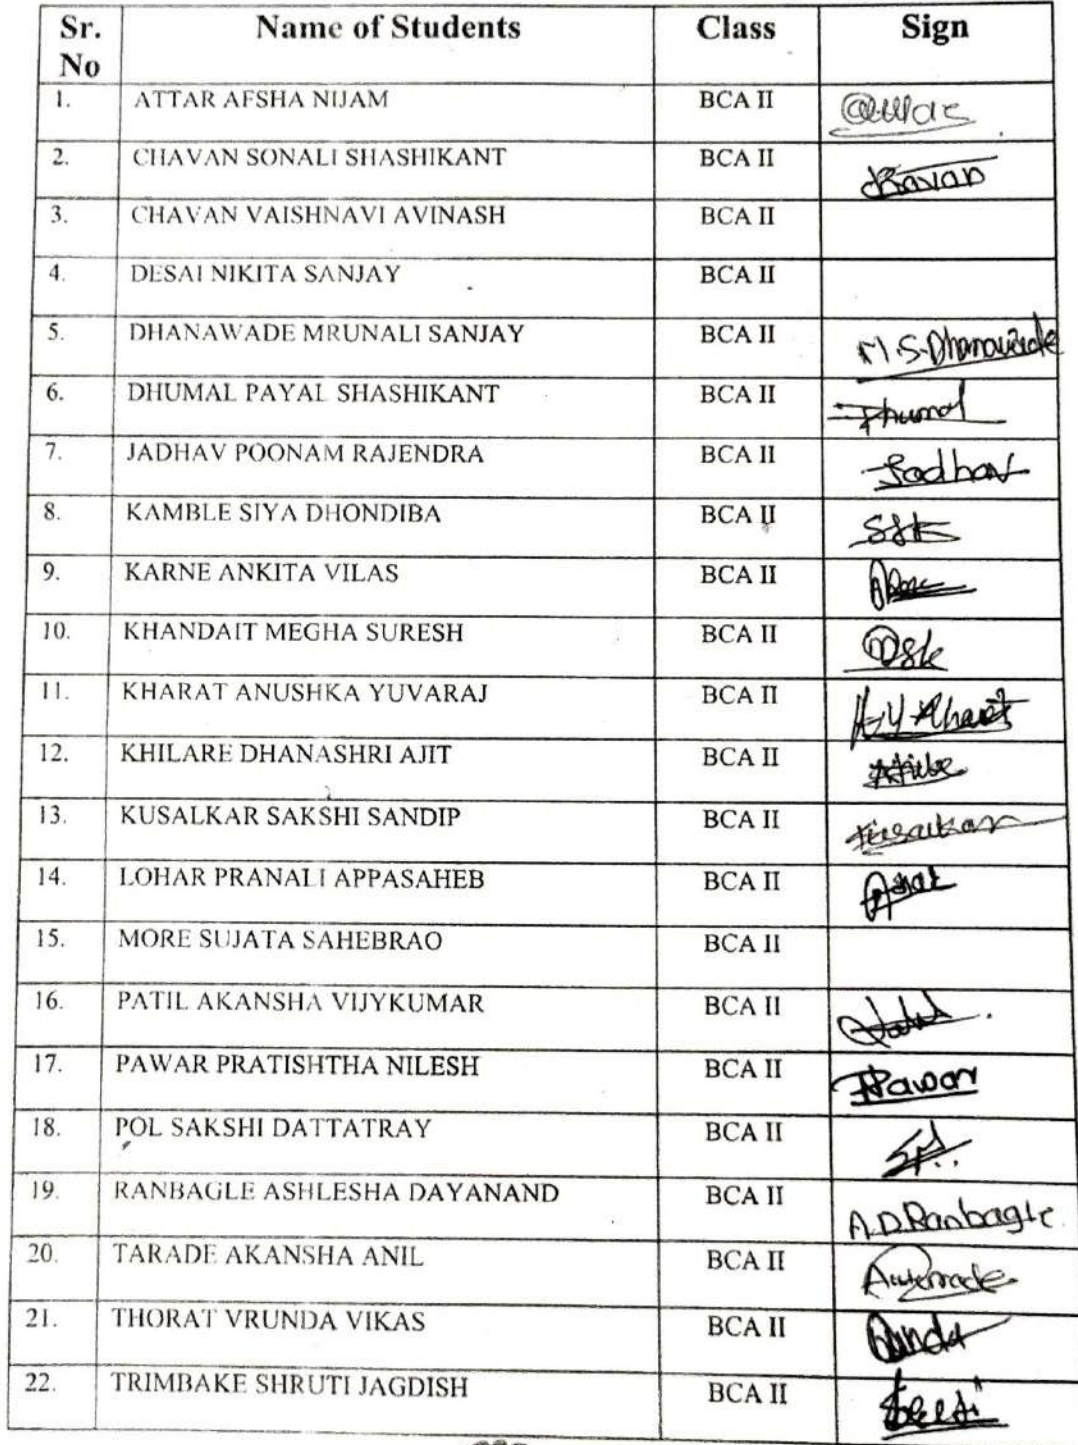 Sr. No Name of Students Class Sign
1. ATTAR AFSHA NIJAM BCA II
2. CHAVAN SONALI SHASHIKANT BCA II Chavan
3. CHAVAN VAISHNAVI AVINASH BCA II
4. DESAI NIKITA SANJAY BCA II
5. DHANAWADE MRUNALI SANJAY BCA II M.S.Dhanawade
6. DHUMAL PAYAL SHASHIKANT BCA II Dhumal
7. JADHAV POONAM RAJENDRA BCA II Jadhav
8. KAMBLE SIYA DHONDIBA BCA II SDK
9. KARNE ANKITA VILAS BCA II
10. KHANDAIT MEGHA SURESH BCA II MSK
11. KHARAT ANUSHKA YUVARAJ BCA II A.Y.Kharat
12. KHILARE DHANASHRI AJIT BCA II
13. KUSALKAR SAKSHI SANDIP BCA II Kusalkar
14. LOHAR PRANALI APPASAHEB BCA II
15. MORE SUJATA SAHEBRAO BCA II
16. PATIL AKANSHA VIJYKUMAR BCA II
17. PAWAR PRATISHTHA NILESH BCA II Pawar
18. POL SAKSHI DATTATRAY BCA II
19. RANBAGLE ASHLESHA DAYANAND BCA II A.D.Ranbagle
20. TARADE AKANSHA ANIL BCA II
21. THORAT VRUNDA VIKAS BCA II
22. TRIMBAKE SHRUTI JAGDISH BCA II